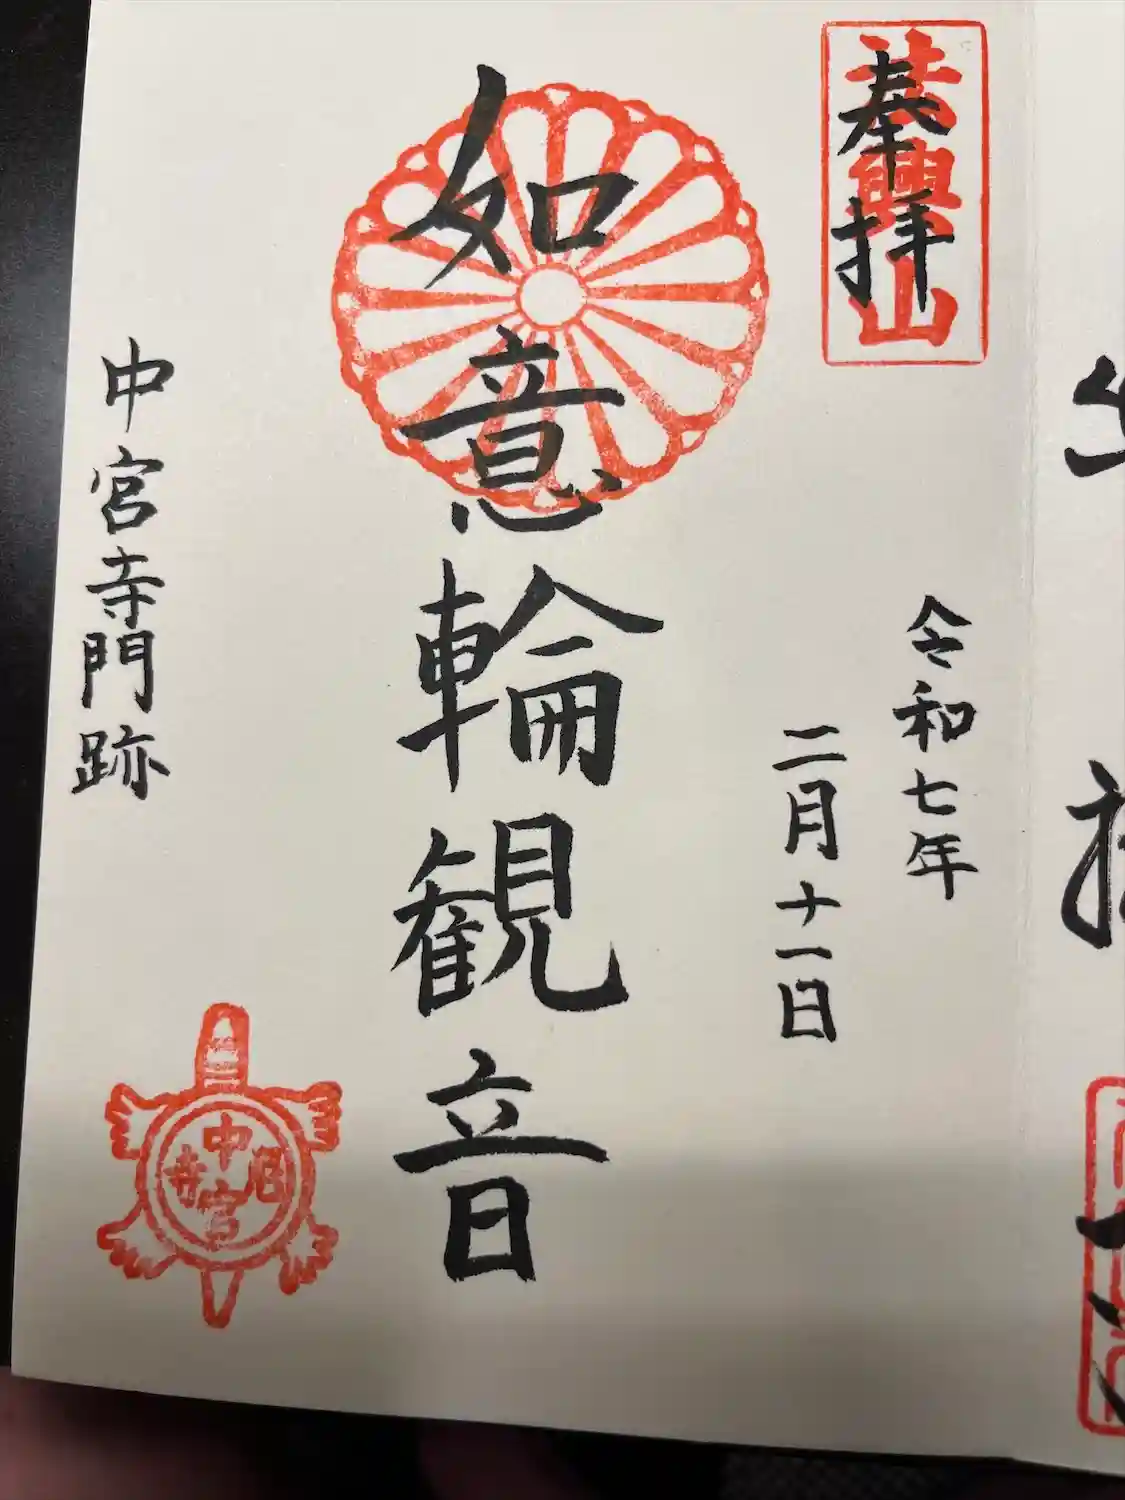 奉拝
法興山
令和七年
二月十一日
如意輪観音
中宮寺門跡
中宮尼寺